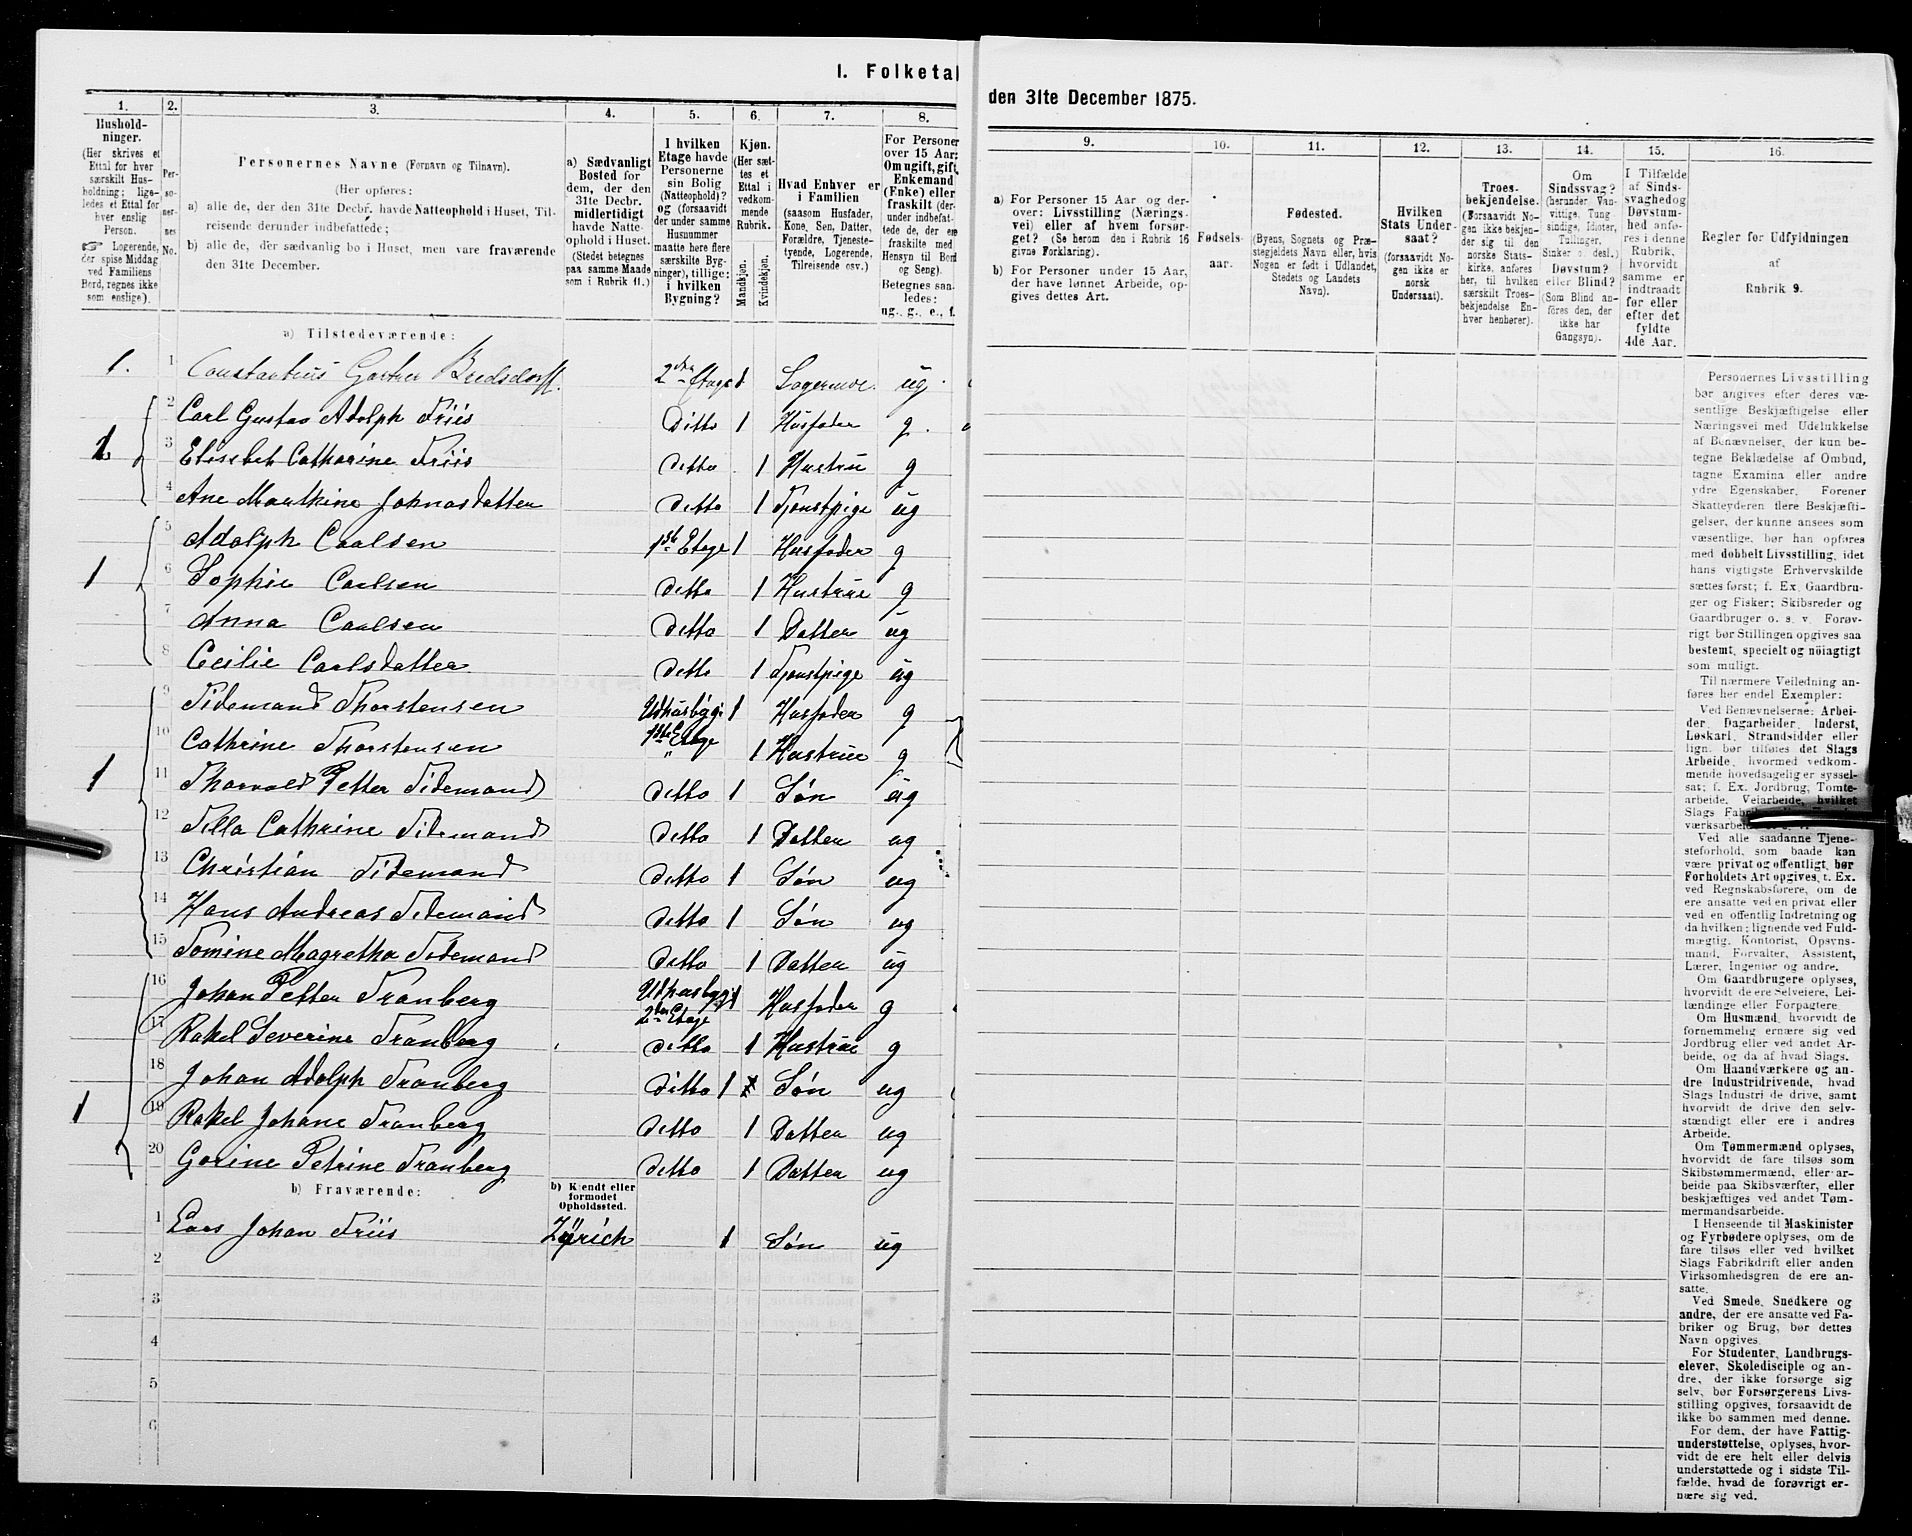 I. Folketal
den 31te December 1875.
1.
Hushold-
ninger.
(Her skrives et
Ettal for hver
særskilt Hus-
holdning; lige-
ledes et Ettal for
hver enslig
Person.
Logerende,
der spise Middag
ved Familiens
Bord, regnes ikke
som enslige).
2.
Per-
so-
ner-
nes
No.
3.
Personernes Navne (Fornavn og Tilnavn).
(Her opføres:
a) alle de, der den 31te Decbr. havde Natteophold i Huset, Til-
reisende derunder indbefattede;
b) alle de, der sædvanlig bo i Huset, men vare fraværende
den 31te December.
4.
a) Sædvanligt
Bosted for
dem, der den
31te Decbr.
midlertidigt
havde Natte-
ophold i Huset.
(Stedet betegnes
paa samme Maade
som i Rubrik 11.)
5.
I hvilken
Etage havde
Personerne
sin Bolig
(Natteophold)?
og (forsaavidt
der under samme
Husnummer
maatte være flere
særskilte Byg-
ninger), tillige:
i hvilken
Bygning?
6.
Kjøn.
(Her sæt-
tes et
Ettal i
vedkom-
mende
Rubrik.
Mandkjøn.
Kvindekjøn.
7.
Hvad Enhver er
i Familien
(saasom Husfader,
Kone, Søn, Datter,
Forældre, Tjeneste-
tyende, Logerende,
Tilreisende osv.)
8.
For Personer
over 15 Aar:
Om ugift, gift,
Enkemand
(Enke) eller
fraskilt (der-
under indbefat-
tede, de ere
fraskilte med
Hensyn til Bord
og Seng).
Betegnes saa-
ledes:
ug., g., e., f.
9.
a) For Personer 15 Aar og der-
over: Livsstilling (Nærings-
vei) eller af hvem forsør-
get? (Se herom den i Rubrik 16
givne Forklaring).
b) For Personer under 15 Aar,
der have lønnet Arbeide, op-
gives dettes Art.
10.
Fødsels-
aar.
11.
Fødested.
(Byens, Sognets og Præ-
stegjeldets Navn eller, hvis
Nogen er født i Udlandet,
Stedets og Landets
Navn).
12.
Hvilken
Stats Under-
saat?
(forsaavidt No-
gen ikke er
norsk
Undersaat).
13.
Troes-
bekjendelse.
(Forsaavidt No-
gen ikke bekjen-
der sig til den
norske Stats-
kirke, anføres
her, til hvilken
særskilt Troes-
bekjendelse En-
hver henhører).
14.
Om
Sindssvag?
(herunder Van-
vittige, Tung-
sindige, Idioter,
Tullinger,
Sinker o. desl.)
Døvstum?
eller Blind?
(Som Blind an-
føres den, der
ikke har
Gangsyn).
15.
I Tilfælde
af Sinds-
svaghed og
Døvstum-
hed anfø-
res i denne
Rubrik,
hvorvidt
samme er
indtraadt
før eller
efter det
fyldte
4de Aar.
16.
Regler for Udfyldningen
af
Rubrik 9.
a) Tilstedeværende:
1. 1 Constantius Gartner Bredsdorff. 2den Etage 1 Logerende. ug.
2 Carl Gustav Adolph Friis Ditto 1 Husfader g.
1 3 Elisebet Catharine Friis ditto 1 Hustru g
4 Ane Marthine Johnasdatter ditto 1 Tjenstpige ug
5 Adolph Carlsen 1ste Etage 1 Husfader g
1 6 Sophie Carlsen ditto 1 Hustrue g
7 Anna Carlsen ditto 1 Datter ug
8 Cecilie Carlsdatter ditto 1 Tjenstpige ug
9 Tidemand Thorstensen Udhusbygn 1 Husfader g
1ste Etage
10 Cathrine Thorstensen " 1 Hustrue g
1 11 Thorvald Petter Tidemand ditto 1 Søn ug
12 Tilla Cathrine Tidemand ditto 1 Datter ug
13 Christian Tidemand ditto 1 Søn ug
14 Hans Andreas Tidemand ditto 1 Søn ug
15 Tomine Magretha Tidemand ditto 1 Datter ug
16 Johan Petter Tranberg Udhusbyg 1 Husfader g
2den Etage
17 Rakel Severine Tranberg ditto 1 Hustrue g
18 Johan Adolph Tranberg ditto 1 Søn ug
1 19 Rakel Johane Tranberg ditto 1 Datter ug
20 Gorine Petrine Tranberg ditto 1 Datter ug
b) Fraværende:
b) Kjendt eller
formodet
Opholdssted.
1 Lars Johan Friis Zürich 1 Søn ug
2
3
4
5
6
Personernes Livsstilling
bør angives efter deres væ-
sentlige Beskjæftigelse eller
Næringsvei med Udelukkelse
af Benævnelser, der kun be-
tegne Beklædelse af Ombud,
tagne Examina eller andre
ydre Egenskaber. Forener
Skatteyderen flere Beskjæfti-
gelser, der kunne ansees som
væsentlige, bør han opføres
med dobbelt Livsstilling, idet
hans vigtigste Erhvervskilde
sættes først; f. Ex. Gaardbru-
ger og Fisker; Skibsreder og
Gaardbruger o. s. v. Forøv-
rigt bør Stillingen opgives saa
bestemt, specielt og nöiagtigt
som muligt.
Til nærmere Veiledning an-
føres her endel Exempler:
Ved Benævnelserne: Arbei-
der, Dagarbeider, Inderst,
Løskarl, Strandsidder eller
lign. bør tilføies det Slags
Arbeide, hvormed vedkom-
mende hovedsagelig er syssel-
sat; f. Ex. Jordbrug, Tomte-
arbeide, Veiarbeide, hvilket
Slags
værksarbeide
Ved alle saadanne Tjene-
steforhold, som baade kan
være privat og offentligt, bør
Forholdets Art opgives, t. Ex.
ved Regnskabsførere, om de
ere ansatte ved en privat eller
ved en offentlig Indretning og
da hvilken; lignende ved Fuld-
mægtig, Kontorist, Opsyns-
mand, Forvalter, Assistent,
Lærer, Ingeniør og andre.
Om Gaardbrugere oplyses,
hvorvidt de ere Selveiere, Lei-
lændinge eller Forpagtere
Om Husmænd, hvorvidt de
fornemmelig ernære sig ved
Jordbrug eller ved andet Ar-
beide, og da af hvad Slags.
Om Haandværkere og an-
dre Industridrivende, hvad
Slags Industri de drive, samt
hvorvidt de drive den selv-
stændigt eller ere i andres
Arbeide.
Om Tømmermænd oplyses,
hvorvidt de fare tilsøs som
Skibstømmermænd, eller ar-
beide paa Skibsværfter, eller
beskjæftiges ved andet Tøm-
mermandsarbeide.
I Henseende til Maskinister
og Fyrbødere oplyses, om de
fare tilsøs eller ved hvilket
Slags Fabrikdrift eller anden
Virksomhedsgren de ere an-
satte.
Ved Smede, Snedkere og
andre, der ere ansatte ved Fa-
briker og Brug, bør dettes
Navn opgives.
For Studenter, Landbrugs-
elever, Skoledisciple og an-
dre, der ikke forsørge sig
selv, bør Forsørgerens Livs-
stilling opgives, forsaavidt de
ikke bo sammen med denne.
For dem, der have Fattig-
understøttelse, oplyses, hvor-
vidt de ere helt eller delvis
understøttede og i sidste Til-
fælde, hvad de forøvrigt er-
nære sig ved.